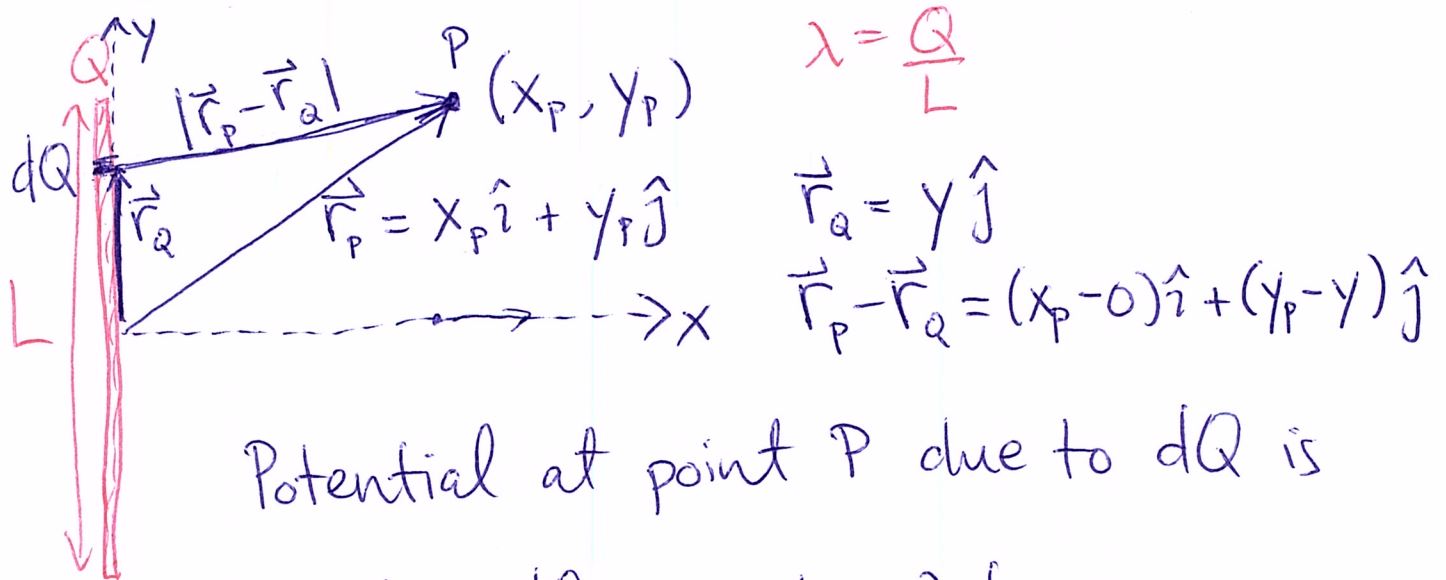 y
Q
P (x_P, y_P)
λ = Q/L
|r⃗_P - r⃗_Q|
dQ
r⃗_Q
r⃗_P = x_P î + y_P ĵ
r⃗_Q = y ĵ
L
x
r⃗_P - r⃗_Q = (x_P - 0) î + (y_P - y) ĵ
Potential at point P due to dQ is